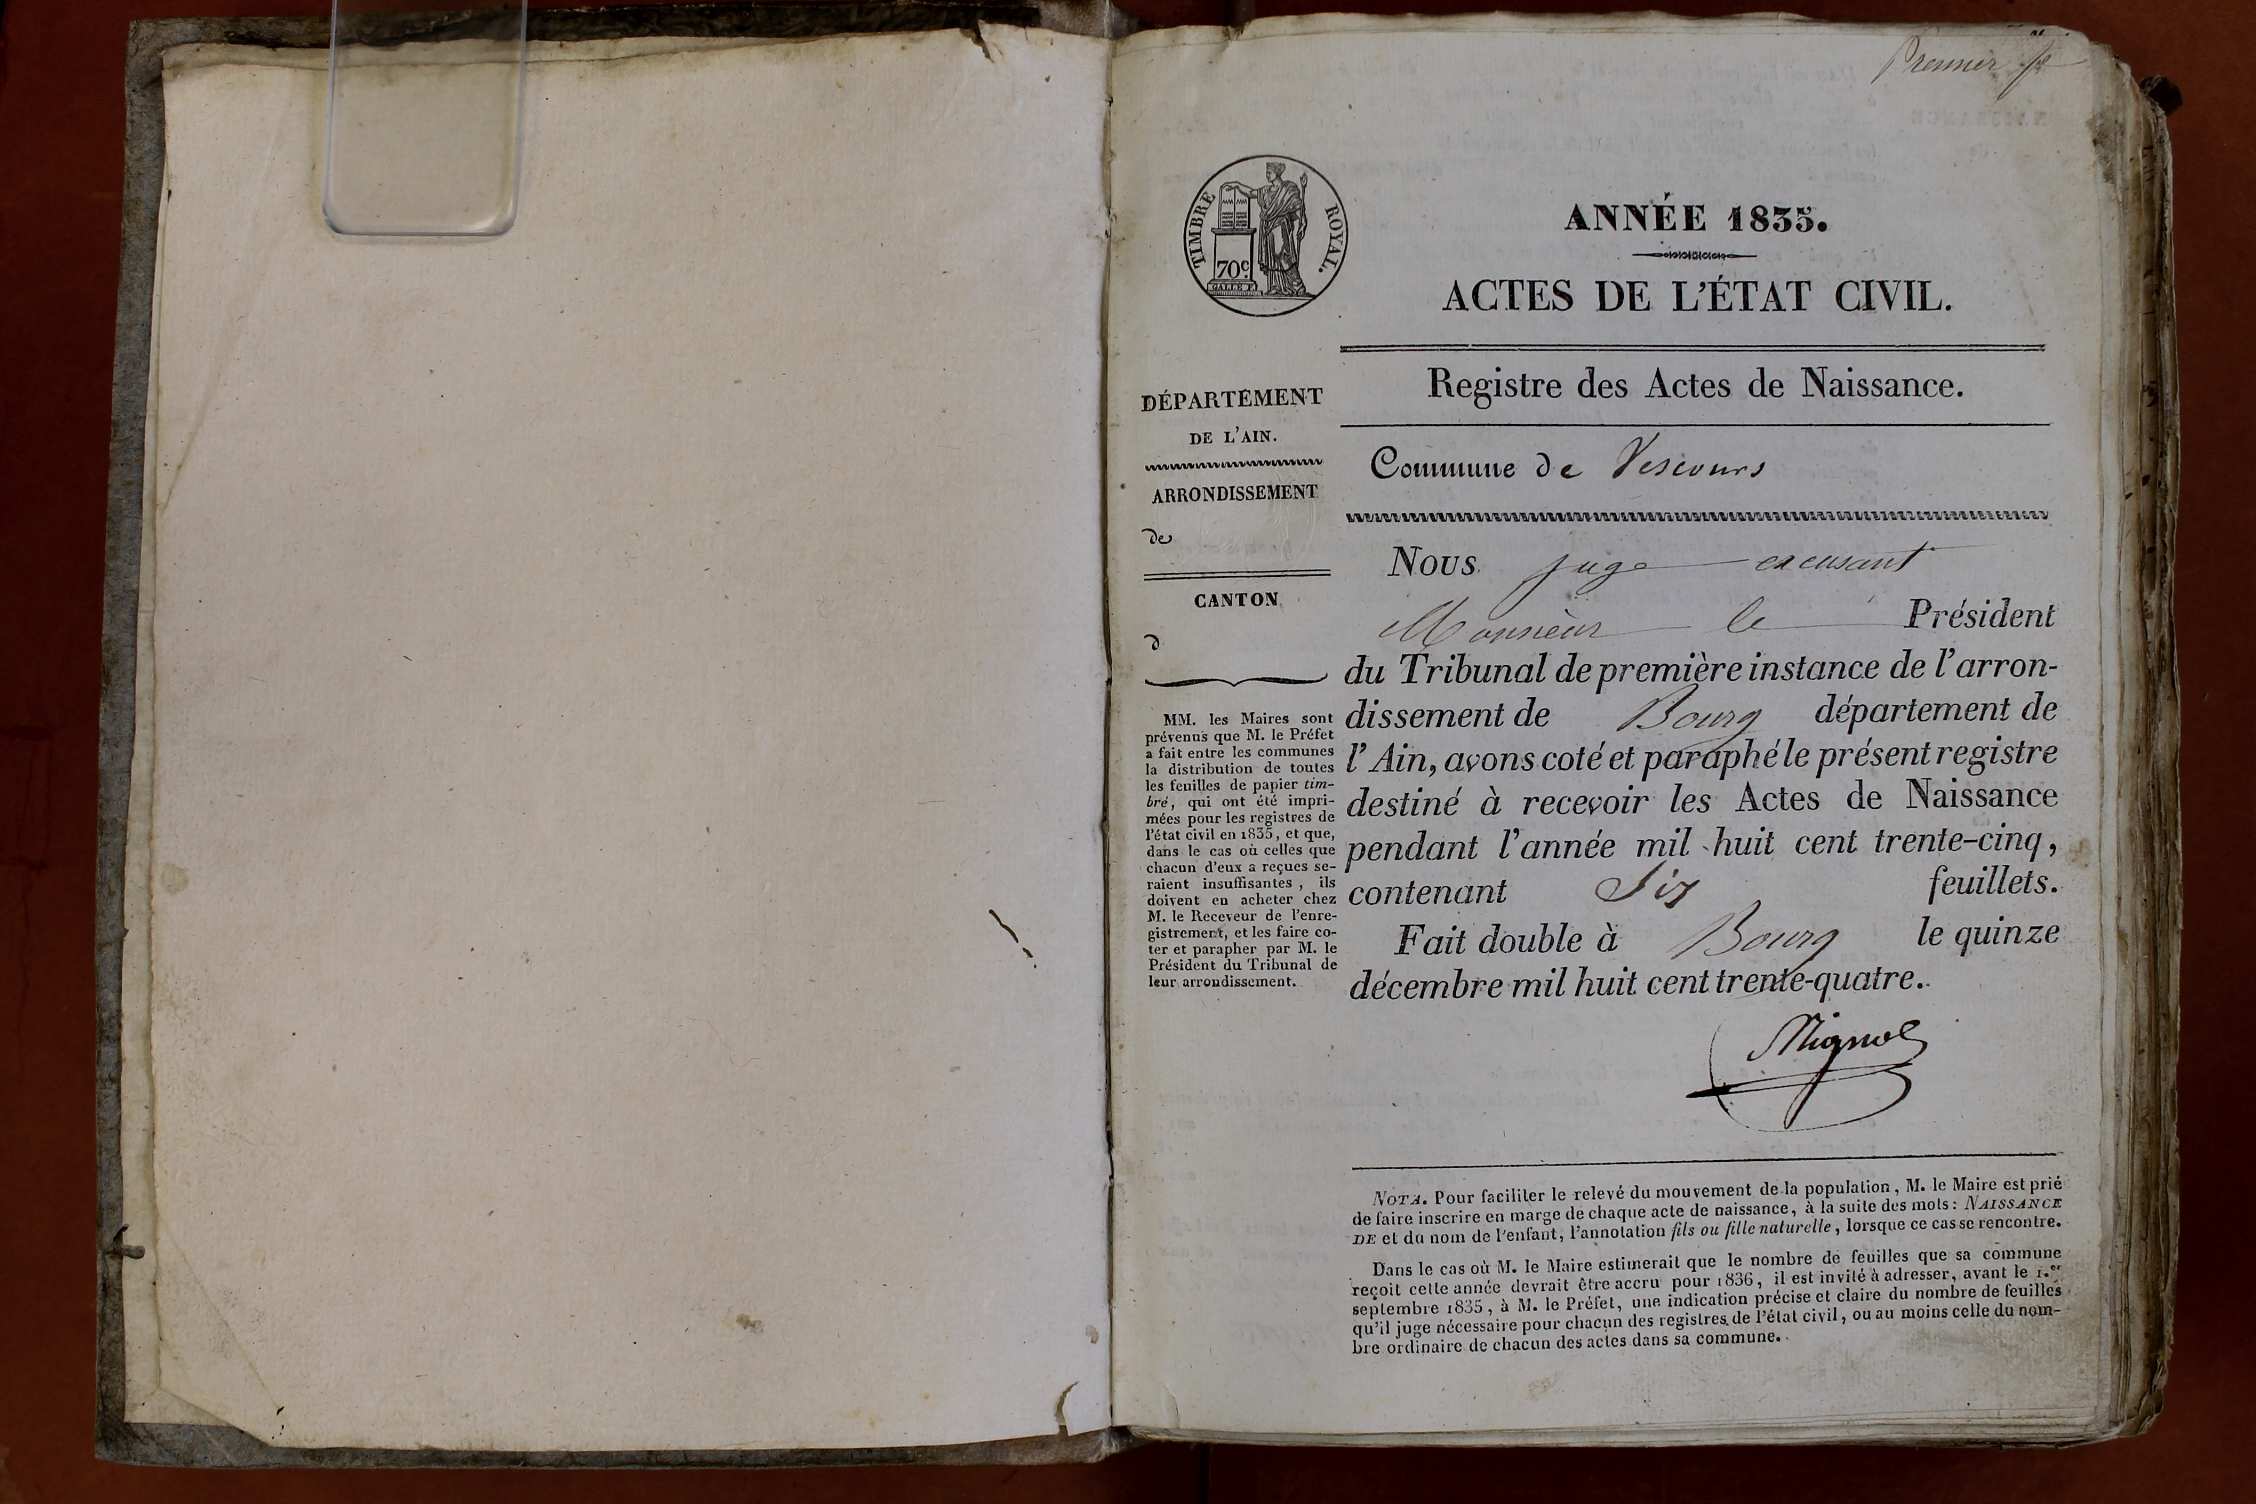 Premier fe
TIMBRE ROYAL.
70c.
GALLE F.
ANNÉE 1835.
ACTES DE L'ÉTAT CIVIL.
DÉPARTEMENT
DE L'AIN.
ARRONDISSEMENT
de
CANTON
d
MM. les Maires sont
prévenus que M. le Préfet
a fait entre les communes
la distribution de toutes
les feuilles de papier tim-
bré, qui ont été impri-
mées pour les registres de
l'état civil en 1835, et que,
dans le cas où celles que
chacun d'eux a reçues se-
raient insuffisantes, ils
doivent en acheter chez
M. le Receveur de l'enre-
gistrement, et les faire co-
ter et parapher par M. le
Président du Tribunal de
leur arrondissement.
Registre des Actes de Naissance.
Commune de Vescours
Nous juge excusant
Monsieur le Président
du Tribunal de première instance de l'arron-
dissement de Bourg département de
l'Ain, avons coté et paraphé le présent registre
destiné à recevoir les Actes de Naissance
pendant l'année mil huit cent trente-cinq,
contenant Six feuillets.
Fait double à Bourg le quinze
décembre mil huit cent trente-quatre.
NOTA. Pour faciliter le relevé du mouvement de la population, M. le Maire est prié
de faire inscrire en marge de chaque acte de naissance, à la suite des mots: NAISSANCE
DE et du nom de l'enfant, l'annotation fils ou fille naturelle, lorsque ce cas se rencontre.
Dans le cas où M. le Maire estimerait que le nombre de feuilles que sa commune
reçoit cette année devrait être accru pour 1836, il est invité à adresser, avant le 1.er
septembre 1835, à M. le Préfet, une indication précise et claire du nombre de feuilles
qu'il juge nécessaire pour chacun des registres de l'état civil, ou au moins celle du nom-
bre ordinaire de chacun des actes dans sa commune.